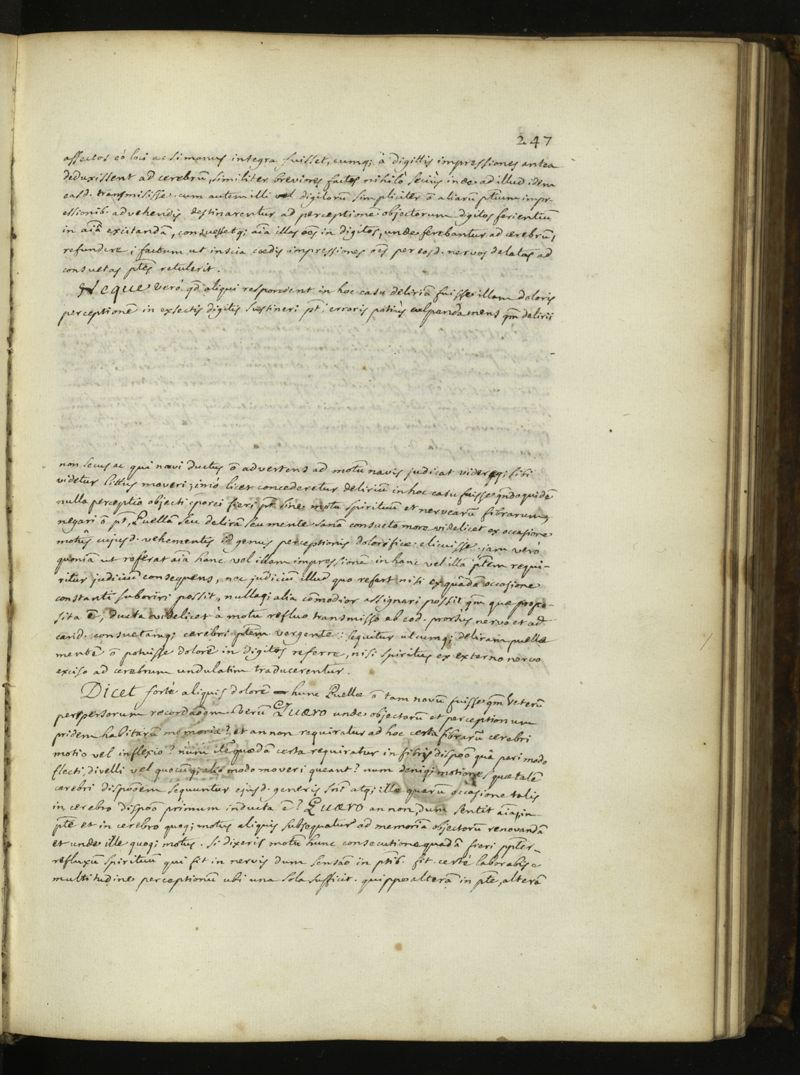 247
affectos eó loci ac si manus integra fuisset, cumq; à digittis impressiones antea
deduxissent ad cerebrū, similiter breviores factos nihilo seciùs inde ad illud idem
easd. transmisisse. cum autem illi vel digitorum simpliciter ō aliarū ptium impr-
essionib. advehendis destinarentur ad perceptione objectorum digitos ferientium
in aīa excitandā, consuessetq; aīa illas ōes in digitos, unde ferebantur ad cerebrū,
refundere; factum ut inscia cædis impressiones ōes per eosd. nervos delatas ad
consuetas ptes retulerit.
Neque veró qd aliqui respondent in hoc casu deliriā fuisse illam doloris
perceptionē in exsectis digitis sustineri pt; erroris potiùs culpanda mens qm delirii
non secus ac qui navi ductus ō advertens ad motū navis judicat sibi
videtur littus moveri; imó licet concederetur delirium in hoc casu fuisse qndoquidē
nulla perceptio objecti fieri pt sine motu spirituum et nervearū fibrarum,
negari ō pt, Puellā seu delirā seu mente sanā consueto more videlicet ex occasione
motûs cujusd. vehementis id genus perceptionis dolorificæ elicuisse. jam veró
quoniā ut referat aīa hanc vel illam impressionē in hanc vel illā ptem requi-
ritur judicium consequens, nec judicium illud quo refert nisi ex quadā occasione
constanti suboriri possit, nullaq; alia cōmodior assignari possit qm quæ propo-
sita ē, ducta videlicet à motu refluo transmisso ab eod. prorsus nervo et ad
eand. consuetamq; cerebri ptem vergente: sequitur utcumq; deliram puellæ
mentē ō potuisse dolorē in digitos referre, nisi spiritus ex externo nervo
exciso ad cerebrum undulatim traducerentur.
Dicet forté aliquis dolorē hunc Puellæ ō tam novū fuisse qm veterū
perpessorum recordāōnem. Verū Quæro unde objectorū et perceptionum
pridem habitarū memoria? et an non requiratur ad hoc certa fibrarū cerebri
motio vel inflexio? num itē quædā certa requiratur in fibris dispōo quâ pari modo
flecti, divelli vel quocūq; alio modo moveri queant? num deniq; motiones quæ talē
cerebri dispōem sequuntur ejusd. generis sint atq; illæ quarū occasione talis
in cerebro dispōo primum inducta ē? Quæro an non, dum sentit aīa in
pte et in cerebro quoq; motus aliquis subsequatur ad memoriā objectorū renovandā
et unde ille quoq; motus. Si dixeris motū hunc consecutione quadā fieri ppter
refluxum spirituum qui fit in nervis dum sensāo in ptib. fit certé laborabis
multitudine perceptionū ubi una sola sufficit. quippe alterā in pte, alterā